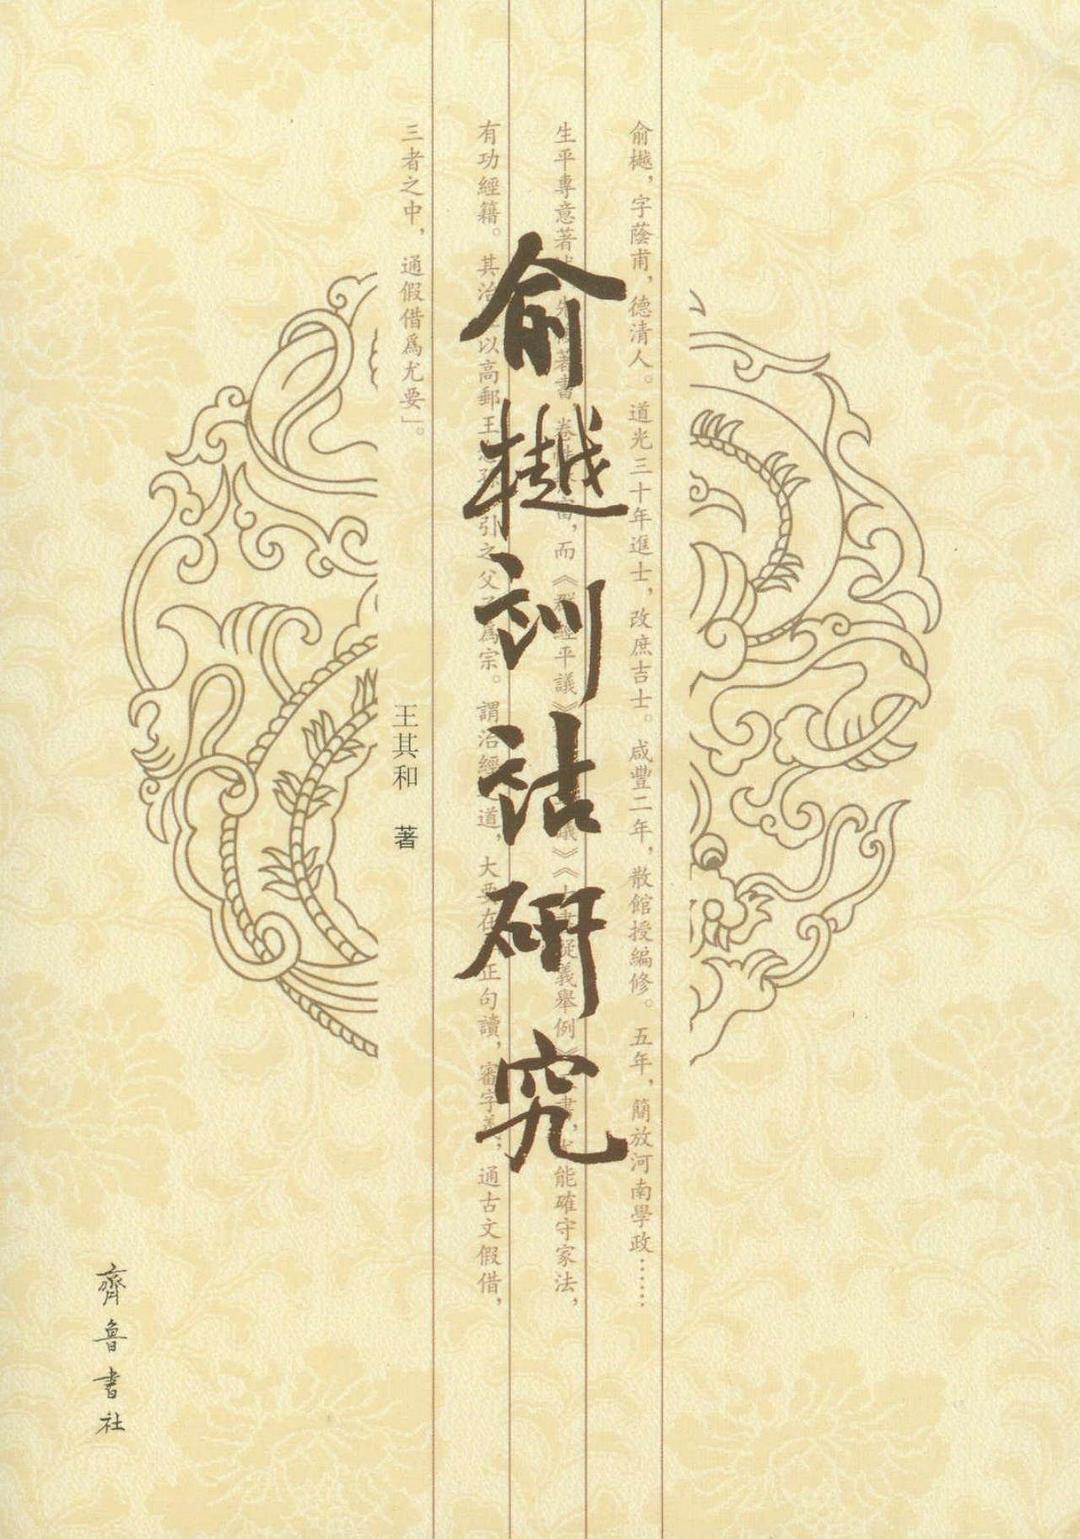 俞樾，字蔭甫，德清人。道光三十年進士，改庶吉士。咸豐二年，散館授編修。五年，簡放河南學政……
生平專意著 著書 卷 富，而《群經平議》 議》《 疑義舉例 書， 能確守家法，
有功經籍。其治 以高郵王 引之父 爲宗。謂治經 道，大要在 正句讀，審字義，通古文假借，
三者之中，通假借爲尤要」。
俞樾訓詁研究
王其和 著
齊魯書社